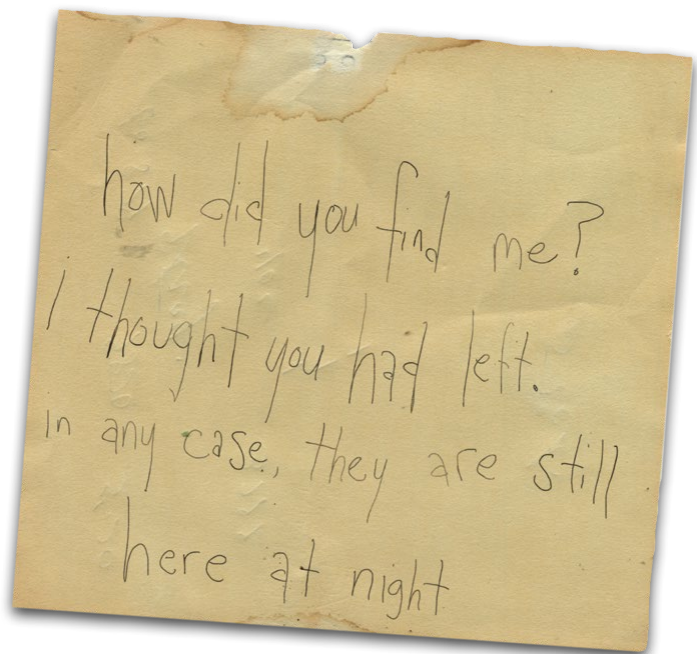 how did you find me?
I thought you had left.
in any case, they are still
here at night